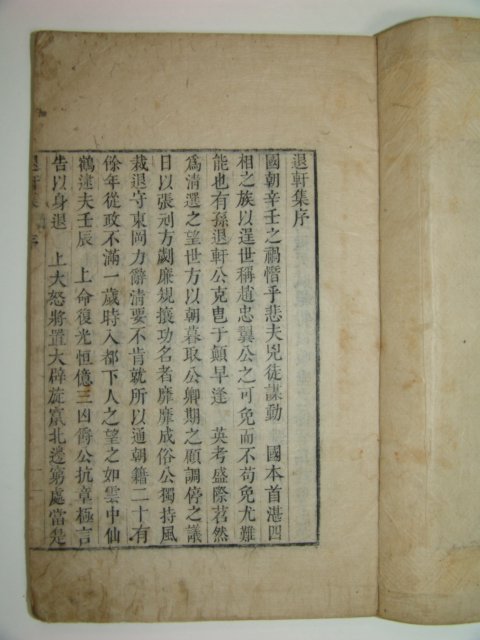 退軒集序
國朝辛壬之禍憯乎悲夫兇徒謀動 國本首湛四
相之族以逞世稱趙忠翼公之可免而不苟免尤難
能也有孫退軒公克皀于顚早逢 英考盛際茗然
爲清選之望世方以朝暮取公卿期之顧調停之議
日以張刓方劌廉規攘功名者靡靡成俗公獨持風
裁退守東岡力辭清要不肯就所以通朝籍二十有
餘年從政不滿一歲時入都下人之望之如雲中仙
鶴逮夫壬辰 上命復光恒億三凶爵公抗章極言
告以身退 上大怒將置大辟旋竄北邊窮處當是
退軒集